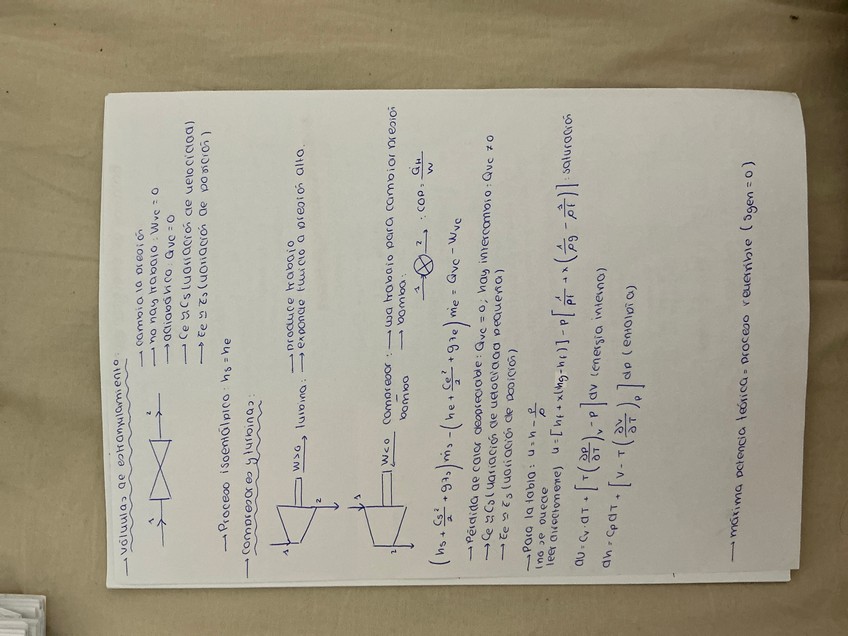 → válvulas de estrangulamiento:
→ cambia la presión
→ no hay trabajo: Wvc = 0
→ adiabática: Qvc = 0
→ Ce ≈ Cs (variación de velocidad)
→ Ze ≈ Zs (variación de posición)
1 2
→ Proceso isoentálpico: hs = he
→ compresores y turbinas:
1 2 W>0 → turbina: → produce trabajo
→ expande fluido a presión alta.
1 2 W<0 compresor: → usa trabajo para cambiar presión
bomba → bomba: 1 2 : COP = QH/W
(hs + Cs²/2 + gzs) ṁs − (he + Ce²/2 + gze) ṁe = Qvc − Wvc
→ Pérdida de calor despreciable: Qvc = 0; hay intercambio: Qvc ≠ 0
→ Ce ≈ Cs (variación de velocidad pequeña)
→ Ze ≈ Zs (variación de posición)
→ Para la tabla: u = h − P/ρ
(no se puede
leer directamente) u = [hf + x(hg − hf)] − P[1/ρf + x(1/ρg − 1/ρf)]: saturación
du = Cv · dT + [T(∂P/∂T)v − P] dv (energía interna)
dh = CpdT + [V − T(∂V/∂T)p] dp (entalpía)
→ máxima potencia teórica = proceso reversible (sgen = 0)